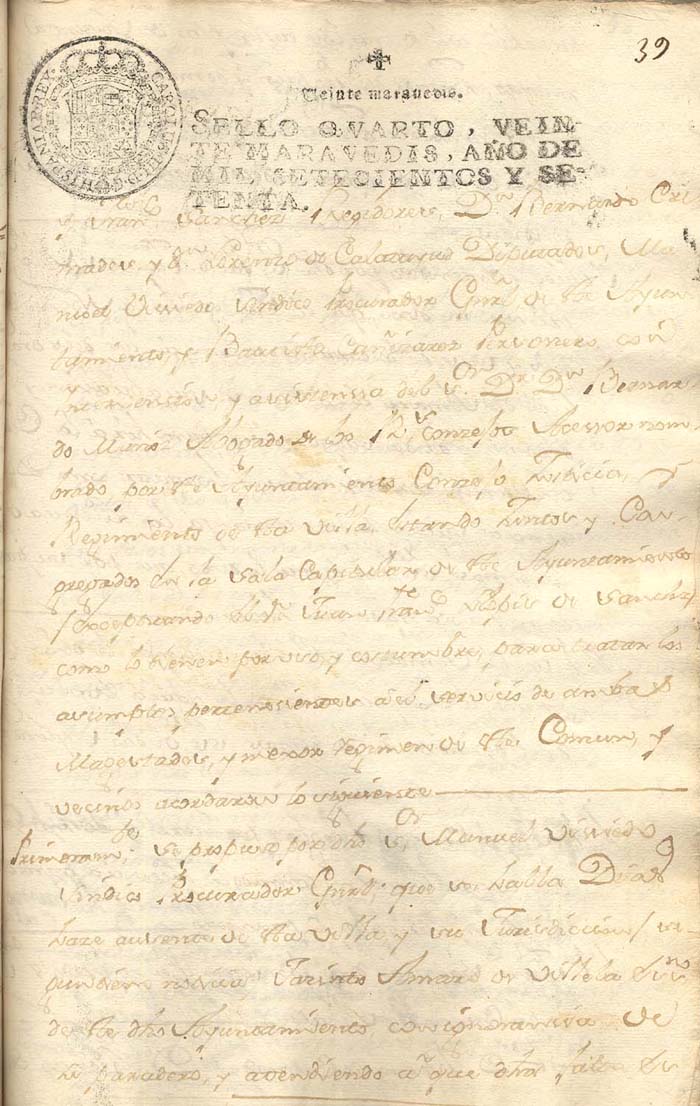 39
CAROLUS III D G HISPANIAR REX
Veinte maravedis.
SELLO QVARTO, VEIN-
TE MARAVEDIS, AÑO DE
MIL SETECIENTOS Y SE-
TENTA.
Sanchez Rexidores, Dn Bernardo
y Dn Lorenzo de Calatayud Diputados, Ma-
nuel Oviedo Sindico Procurador Gnrl de este Ayun-
tamiento, y Bautista Cañizarez Pregonero, con
intervencion, y asistencia del Sr Dr Dn Bernar-
do Muñoz Abogado de los Rs consejos Acessor nom-
brado por este Ayuntamiento Consejo Justicia, y
Regimiento de esta villa, estando Juntos y Con-
gregados en la Sala Capitular de este Ayuntamiento
Juan de Sanchez
como lo tienen por uso, y costumbre, para tratar los
asumptos pertenecientes a el servicio de ambas
Magestades, y mejor regimen de este Comun, y
vecinos acordaron lo siguiente
Primeramte se propuso por dho Sr Manuel Oviedo
Sindico Procurador Gnrl que se halla Dias
haze ausente de esta villa, y su Jurisdicion
Jacinto de Villela Ssno
de este dho Ayuntamiento con ignorancia de
su paradero, y atendiendo a que dha falta de